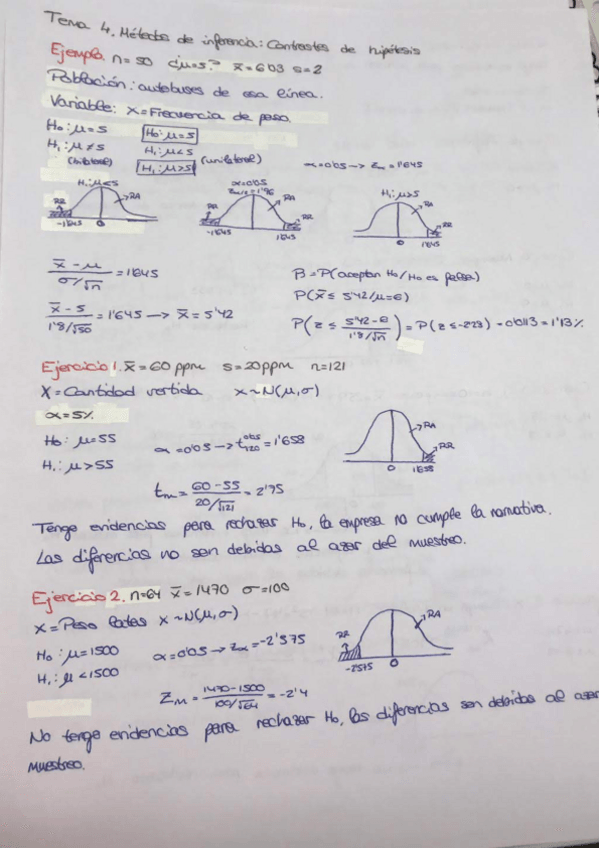 Tema 4. Métodos de inferencia: Contrastes de hipótesis
Ejemplo. n= 50 ¿μ=5? x̄=6'03 s=2
Población: autobuses de esa línea.
Variable: x=Frecuencia de paso.
H₀: μ=5 H₀: μ=5
H₁: μ≠5 H₁: μ<5
(bilateral) H₁: μ>5 (unilateral) α=0'05 → Zα=1'645
H₁: μ<5 α=0'05 H₁: μ>5
Zα/2=1'96
RR RA RR RA RA RR
-1'645 0 -1'645 0 1'645 0 1'645
(x̄ - μ)/(σ/√n) = 1'645 β = P(aceptar H₀/H₀ es falsa)
P(x̄ ≤ 5'42/μ=6)
(x̄ - 5)/(1'8/√50) = 1'645 → x̄ = 5'42 P(z ≤ (5'42-6)/(1'8/√n)) = P(z ≤ -2'23) = 0'0113 = 1'13%
Ejercicio 1. x̄=60 ppm s=20ppm n=121
X=Cantidad vertida x~N(μ,σ)
α=5%
H₀: μ=55 α=0'05 → t₁₂₀^0'05 = 1'658 RA
H₁: μ>55 RR
0 1'658
tm = (60-55)/(20/√121) = 2'75
Tengo evidencias para rechazar H₀, la empresa no cumple la normativa.
Las diferencias no son debidas al azar del muestreo.
Ejercicio 2. n=64 x̄=1470 σ=100
X=Peso latas x~N(μ,σ) RA
H₀: μ=1500 α=0'05 → Zα=-2'575 RR
H₁: μ<1500 -2'575 0
Zm = (1470-1500)/(100/√64) = -2'4
No tengo evidencias para rechazar H₀, las diferencias son debidas al azar
muestreo.